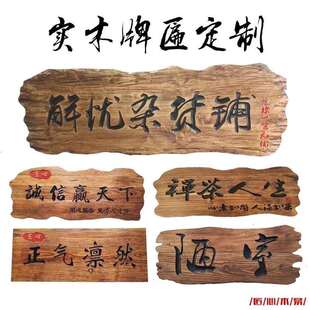 实木牌匾定制
解忧杂货铺
誠信赢天下
禅茶人生
正气凛然
陋室
/匠/心/木/易/